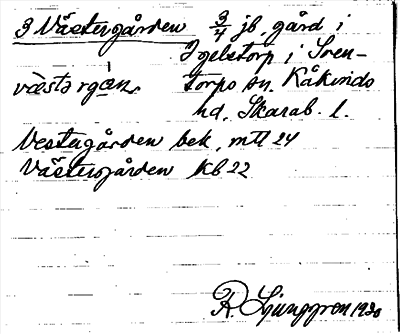 3 Västergården 3/4 jb. gård i
Igelstorp i Sven-
västərgån. torps sn. Kåkinds
hd. Skarab. l.
Vestergården bek, mtl 24
Västergården Kb 22
R. Ljunggren 1930